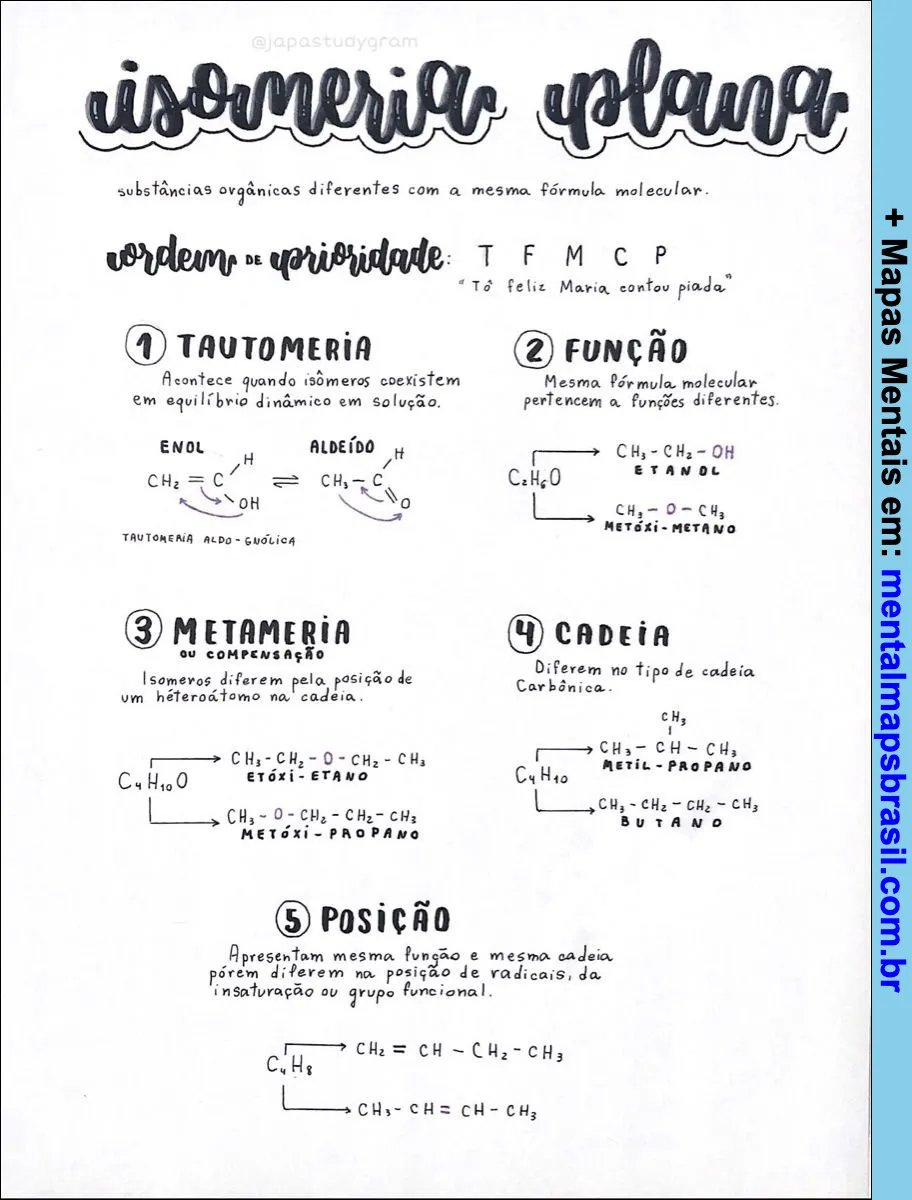 @japastudygram
isomeria plana
substâncias orgânicas diferentes com a mesma fórmula molecular.
ordem DE prioridade: T F M C P
"Tô feliz Maria contou piada"
1 TAUTOMERIA
Acontece quando isômeros coexistem
em equilíbrio dinâmico em solução.
ENOL
ALDEÍDO
H
H
CH₂ = C
⇌
CH₃ – C
OH
O
TAUTOMERIA ALDO-ENÓLICA
2 FUNÇÃO
Mesma fórmula molecular
pertencem a funções diferentes.
CH₃ - CH₂ - OH
ETANOL
C₂H₆O
CH₃ - O - CH₃
METÓXI-METANO
3 METAMERIA
OU COMPENSAÇÃO
Isomeros diferem pela posição de
um héteroátomo na cadeia.
CH₃ - CH₂ - O - CH₂ - CH₃
ETÓXI-ETANO
C₄H₁₀O
CH₃ - O - CH₂ - CH₂ - CH₃
METÓXI-PROPANO
4 CADEIA
Diferem no tipo de cadeia
Carbônica.
CH₃
CH₃ - CH - CH₃
METIL-PROPANO
C₄H₁₀
CH₃ - CH₂ - CH₂ - CH₃
BUTANO
5 POSIÇÃO
Apresentam mesma função e mesma cadeia
pórem diferem na posição de radicais, da
insaturação ou grupo funcional.
CH₂ = CH - CH₂ - CH₃
C₄H₈
CH₃ - CH = CH - CH₃
+ Mapas Mentais em: mentalmapsbrasil.com.br